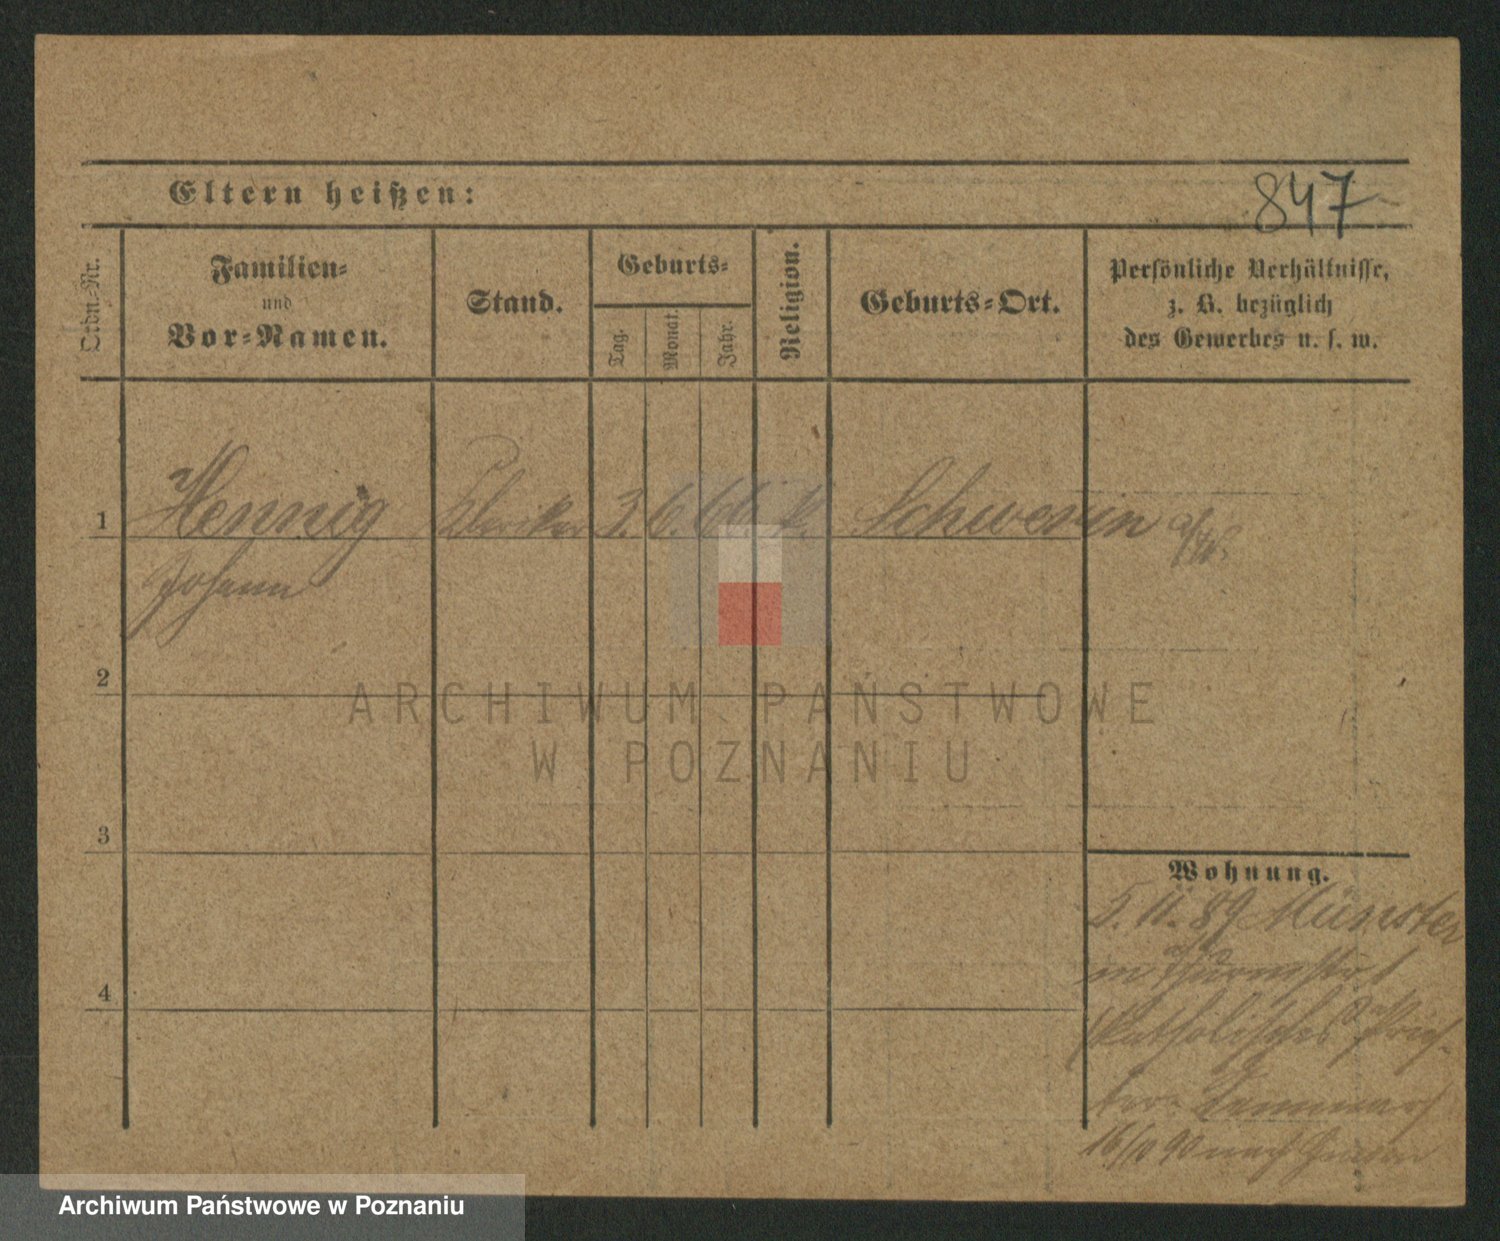 847
Eltern heißen:
Ordn.-Nr.
Familien-
und
Vor-Namen.
Stand.
Geburts-
Tag.
Monat.
Jahr.
Religion.
Geburts-Ort.
Persönliche Verhältnisse,
z. B. bezüglich
des Gewerbes u. s. w.
1 Hennig Kleriker 3. 6. 66. k. Schwerin a/W.
Johann
2
3
4
Wohnung.
5. 11. 89 Münster
in Thurmstr 1
Katholisches Pries-
ter- Seminar
16/10 90 nach
ARCHIWUM PAŃSTWOWE
W POZNANIU
Archiwum Państwowe w Poznaniu